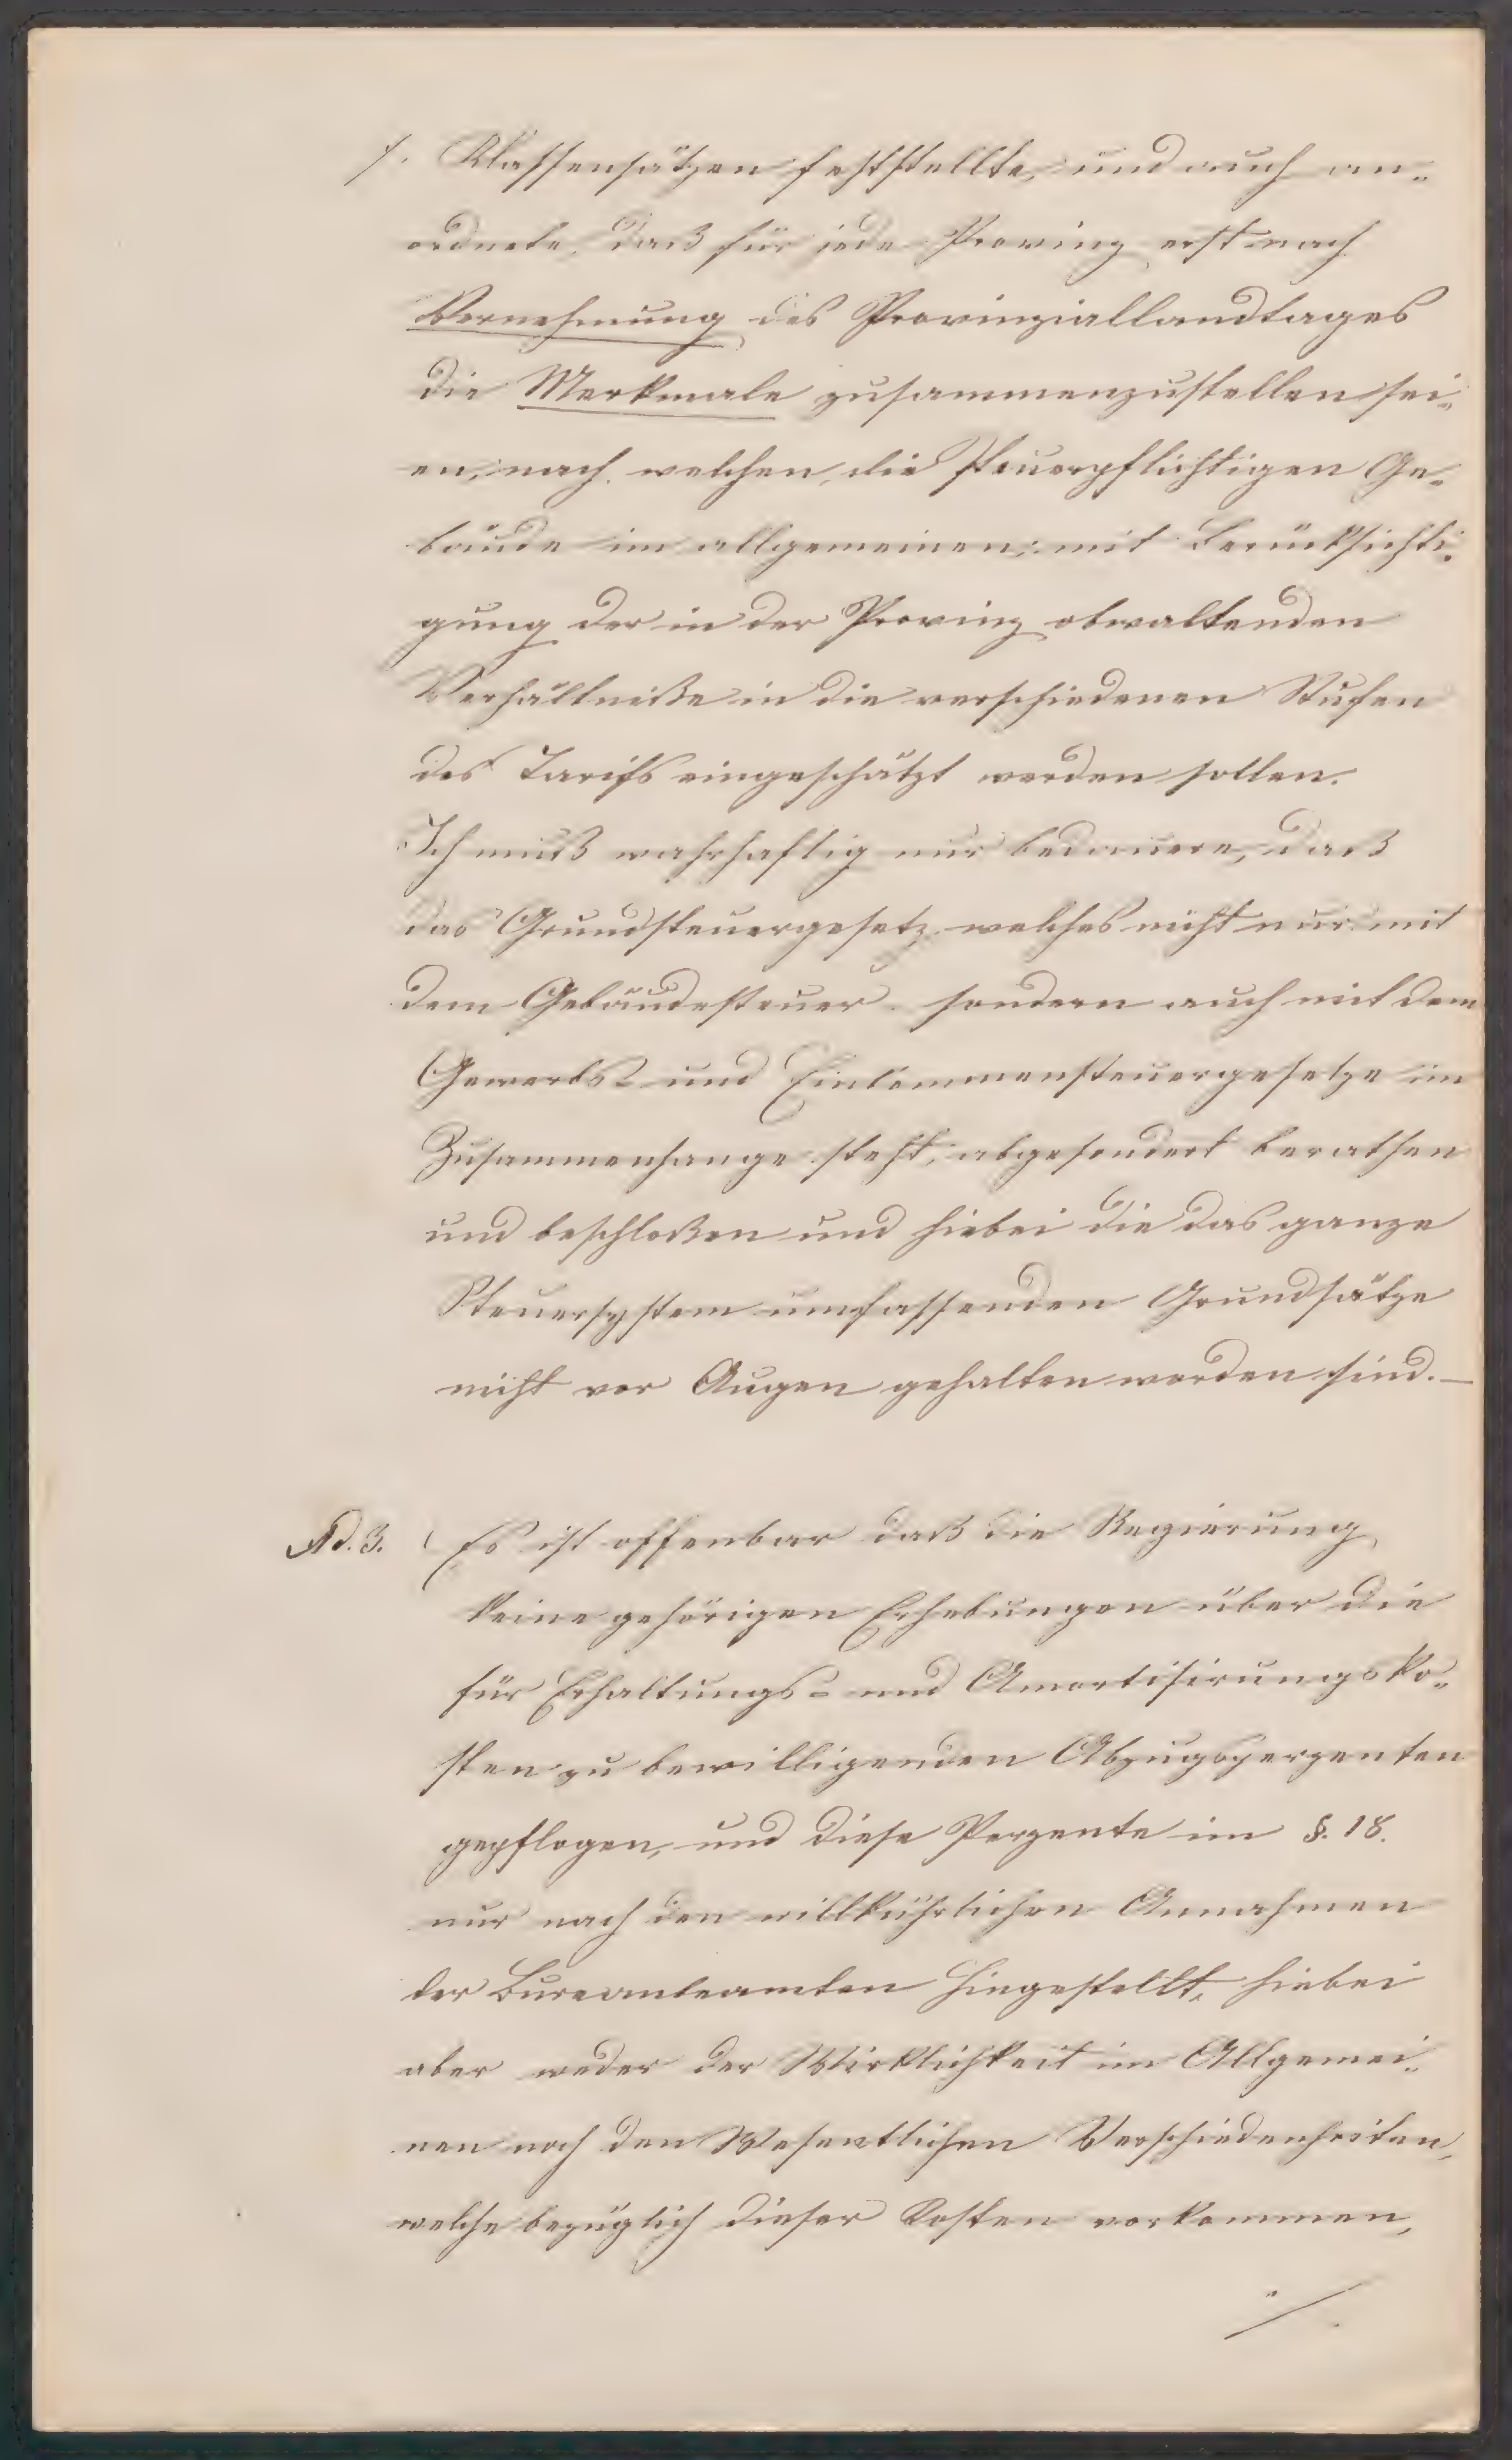 /. Klassensätzen feststellte, und auch an-
ordnete, daß für jede Provinz erst nach
Vernehmung des Provinziallandtages
die Merkmale zusammenzustellen sei-
en, nach welchen die steuerpflichtigen Ge-
bäude im allgemeinen, mit Berücksichti-
gung der in der Provinz obwaltenden
Verhältniße in die verschiedenen Stufen
des Tarifs eingeschätzt werden sollen.
Ich muß wahrhaftig nur bedauern, daß
das Grundsteuergesetz welches nicht nur mit
dem Gebäudesteuer- sondern auch mit dem
Gewerbs- und Einkommensteuergesetze im
Zusammenhange steht, abgesondert berathen
und beschloßen und hiebei die das ganze
Steuersystem umfassenden Grundsätze
nicht vor Augen gehalten worden sind. —
Ad. 3. Es ist offenbar daß die Regierung
keine gehörigen Erhebungen über die
für Erhaltungs- und Amortisirungsko-
sten zu bewilligenden Abzugsperzenten
gepflogen, und diese Perzente im §. 18.
nur nach den willkührlichen Annahmen
der Bureaubeamten hingestellt, hiebei
aber weder der Wirklichkeit im Allgemei-
nen noch den Wesentlichen Verschiedenheiten,
welche bezüglich dieser Kosten vorkommen,
./.